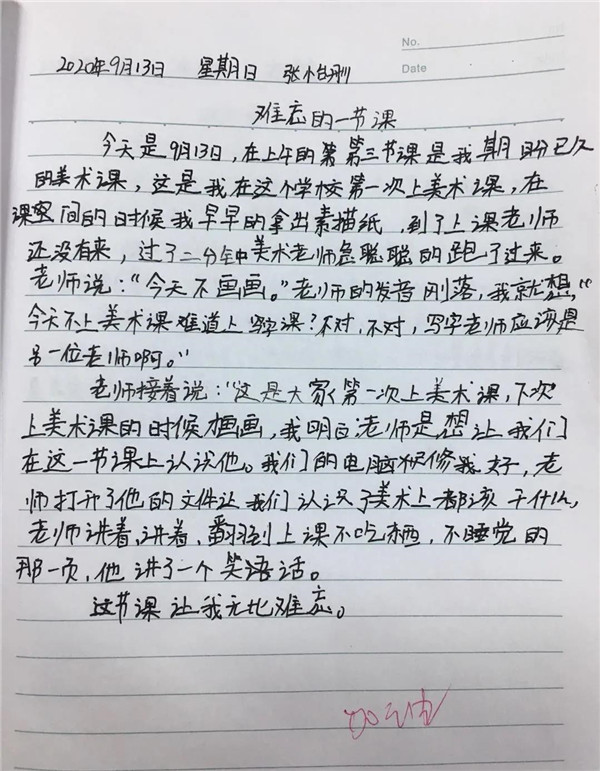 No.
Date
2020年9月13日 星期日 张小
难忘的一节课
今天是9月13日,在上午的第第三节课是我期盼已久
的美术课,这是我在这个学校第一次上美术课,在
课间的时候我早早的拿出素描纸,到了上课老师
还没有来,过了二分钟美术老师急聪聪的跑了过来。
老师说:“今天不画画。”老师的发音刚落,我就想,“
今天不上美术课难道上写字课?不对,不对,写字老师应该是
另一位老师啊。”
老师接着说:“这是大家第一次上美术课,下次
上美术课的时候画,我明白老师是想让我们
在这一节课上认识他。我们的电脑修好,老
师打开了他的文件让我们认识了美术上都该干什么,
老师讲着,讲着,翻到上课不吃东西,不睡觉的
那一页,他讲了一个笑语话。
这节课让我无比难忘。
加油